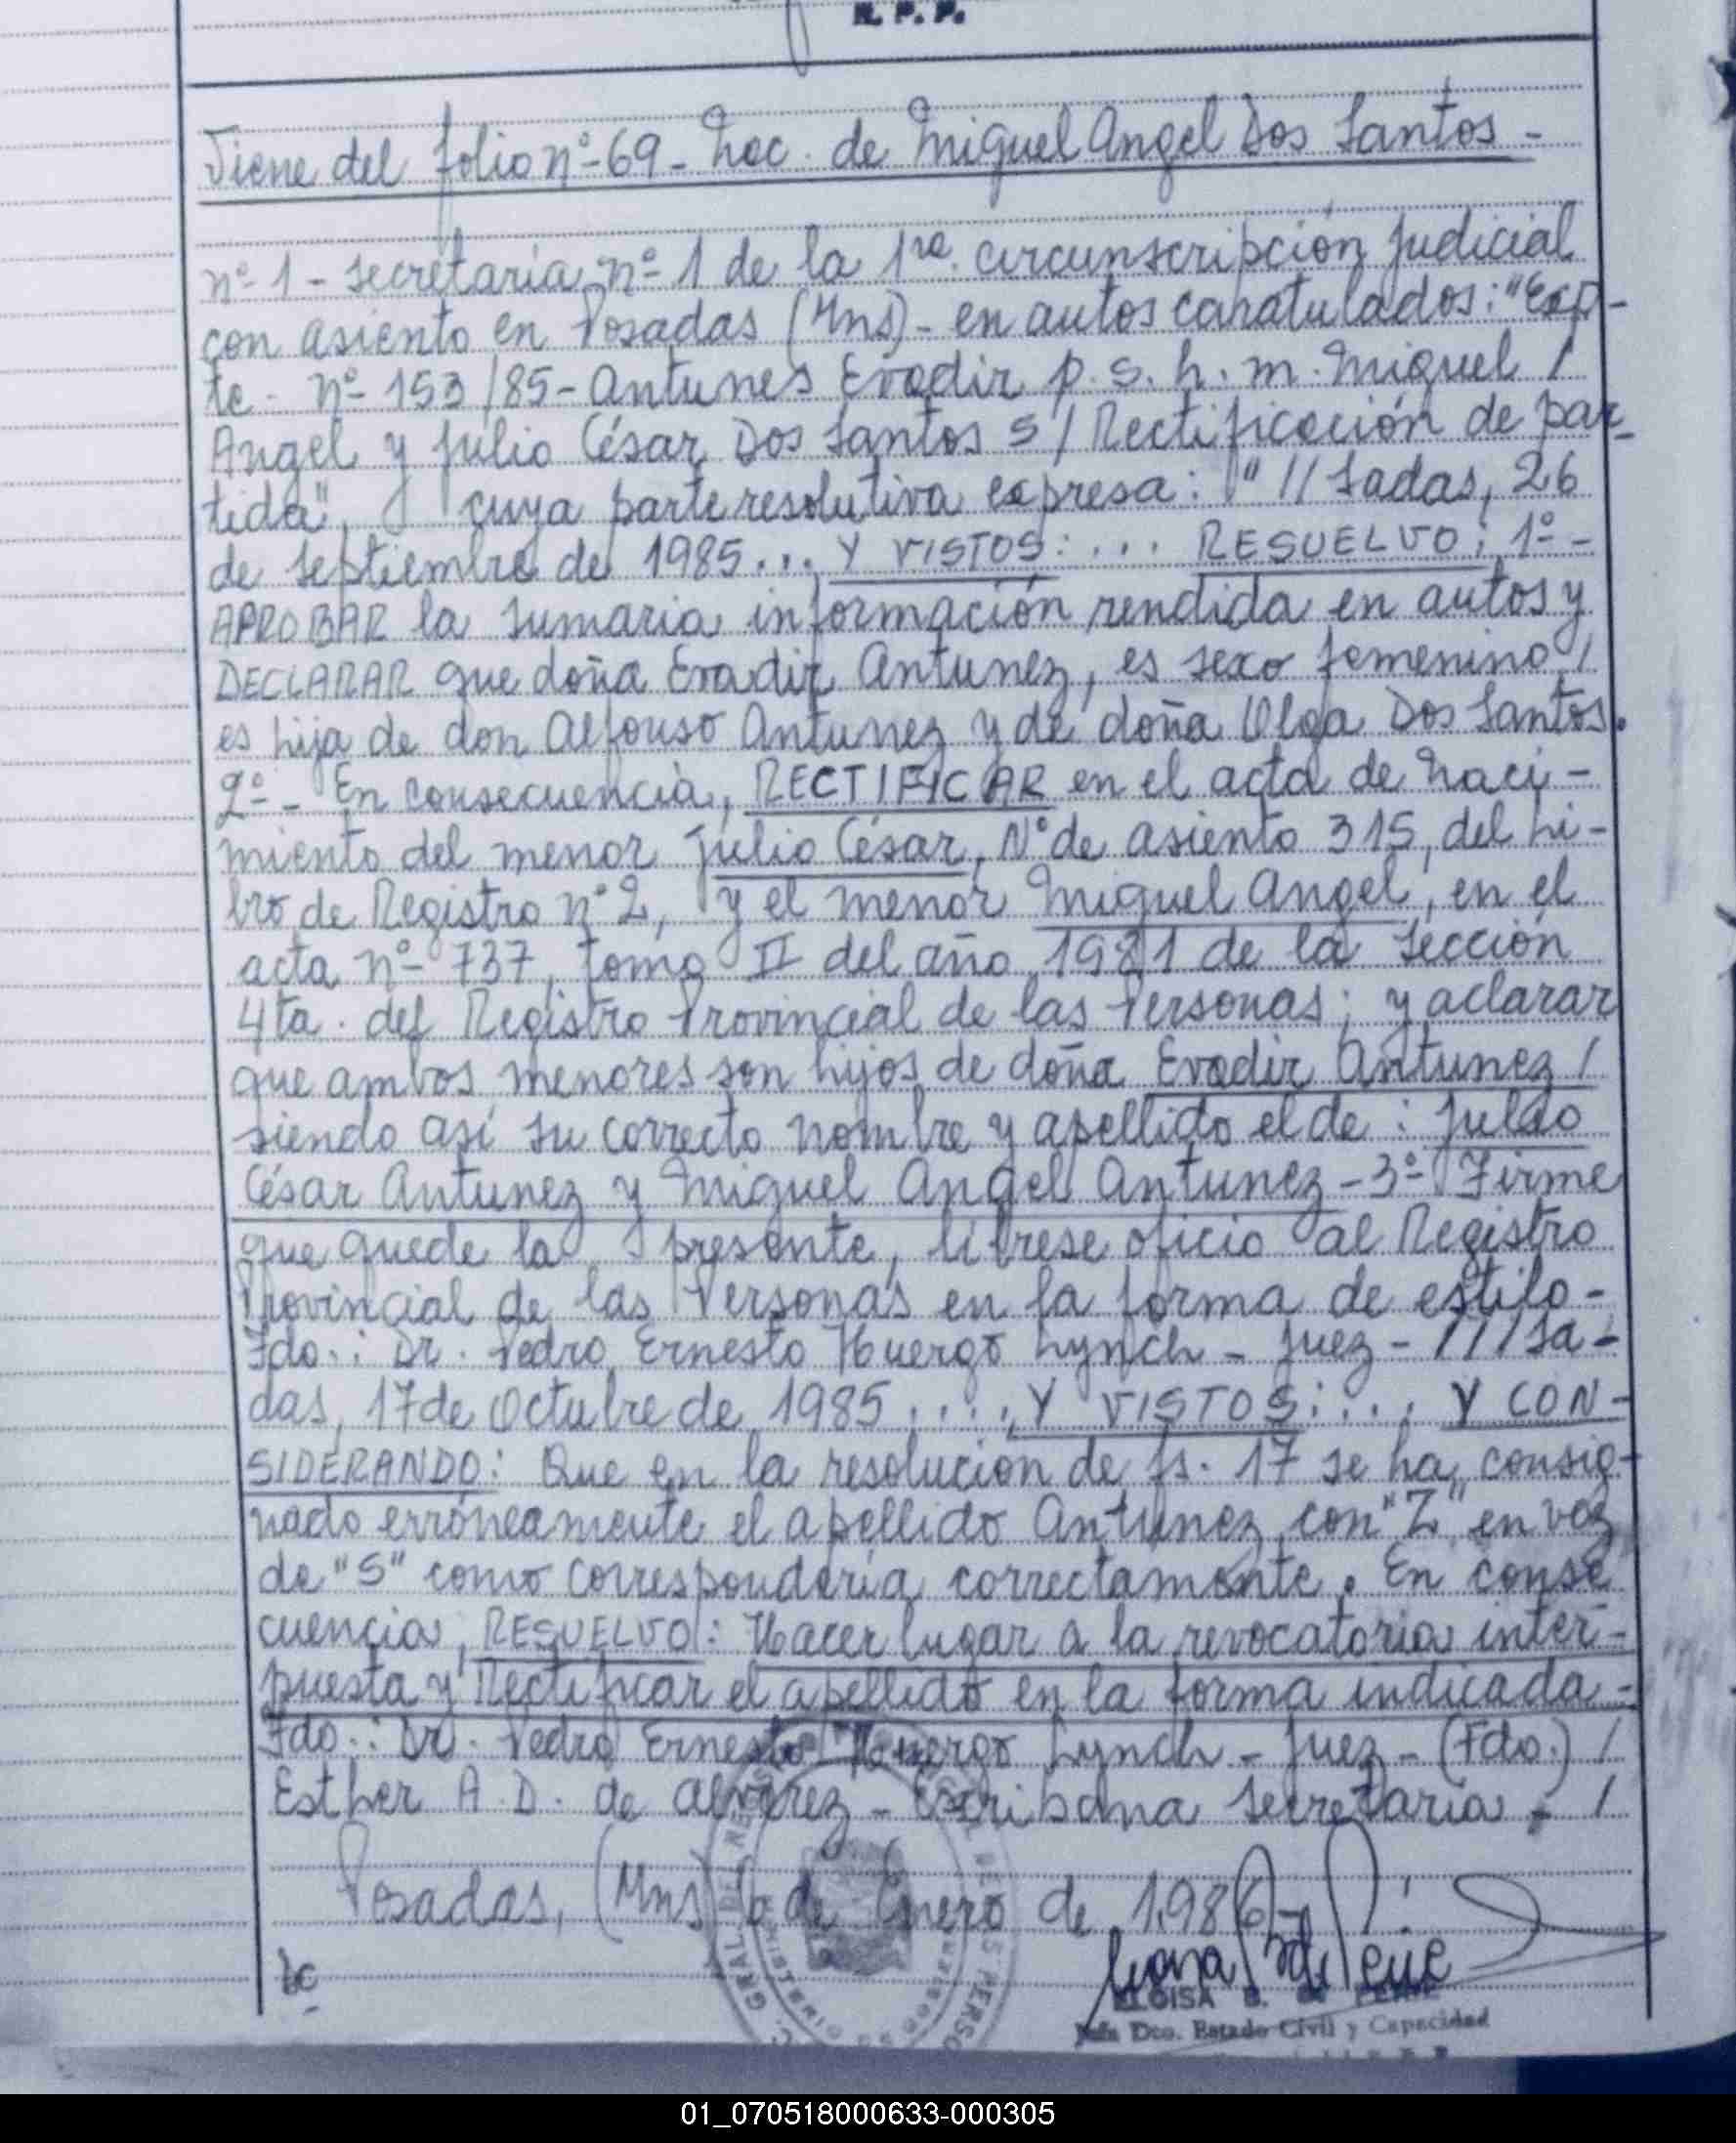 R. P. P.
Viene del folio nº-69- Nac. de Miguel Angel Dos Santos -
nº-1- secretaria nº-1 de la 1ra. circunscripción judicial
con asiento en Posadas (Mns)- en autos caratulados: "Exp-
te- nº-153/85- Antunes Eradir p. s. h. m. Miguel /
Angel y Julio César Dos Santos S/ Rectificación de par-
tida", cuya parte resolutiva expresa: "//sadas, 26
de septiembre de 1985... Y VISTOS:... RESUELVO: 1º-
APROBAR la sumaria información rendida en autos y
DECLARAR que doña Eradir Antunez, es sexo femenino,/
es hija de don Alfonso Antunez y de doña Olga Dos Santos.
2º- En consecuencia, RECTIFICAR en el acta de naci-
miento del menor Julio César, Nº de asiento 315, del Li-
bro de Registro nº2, y el menor Miguel Angel, en el
acta nº- 737, tomo II del año 1981 de la sección
4ta. del Registro Provincial de las Personas; y aclarar
que ambos menores son hijos de doña Eradir Antunez /
siendo así su correcto nombre y apellido el de: Julio
César Antunez y Miguel Angel Antunez-3º- Firme
que quede la presente, líbrese oficio al Registro
Provincial de las Personas en la forma de estilo-
Fdo.: Dr. Pedro Ernesto Huergo Lynch- Juez- ///sa-
das, 17 de Octubre de 1985.... Y VISTOS:.... Y CON-
SIDERANDO: Que en la resolución de fs. 17 se ha consig-
nado erróneamente el apellido Antunez con "Z" en vez
de "S" como correspondería correctamente. En conse
cuencia, RESUELVO: Hacer lugar a la revocatoria inter-
puesta y Rectificar el apellido en la forma indicada-
Fdo.: Dr. Pedro Ernesto Huergo Lynch- Juez- (Fdo.) /
Esther A. D. de Alvarez- Escribana Secretaria- /
Posadas, (Mns) 6 de Enero de 1986-
ELOISA B. de
Jefa Dco. Estado Civil y Capacidad
01_070518000633-000305